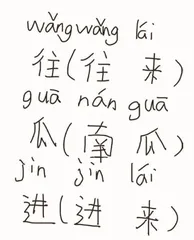 wǎngwǎng lái
往(往 来)
guā nán guā
瓜(南 瓜)
jìn jìn lái
进(进 来)